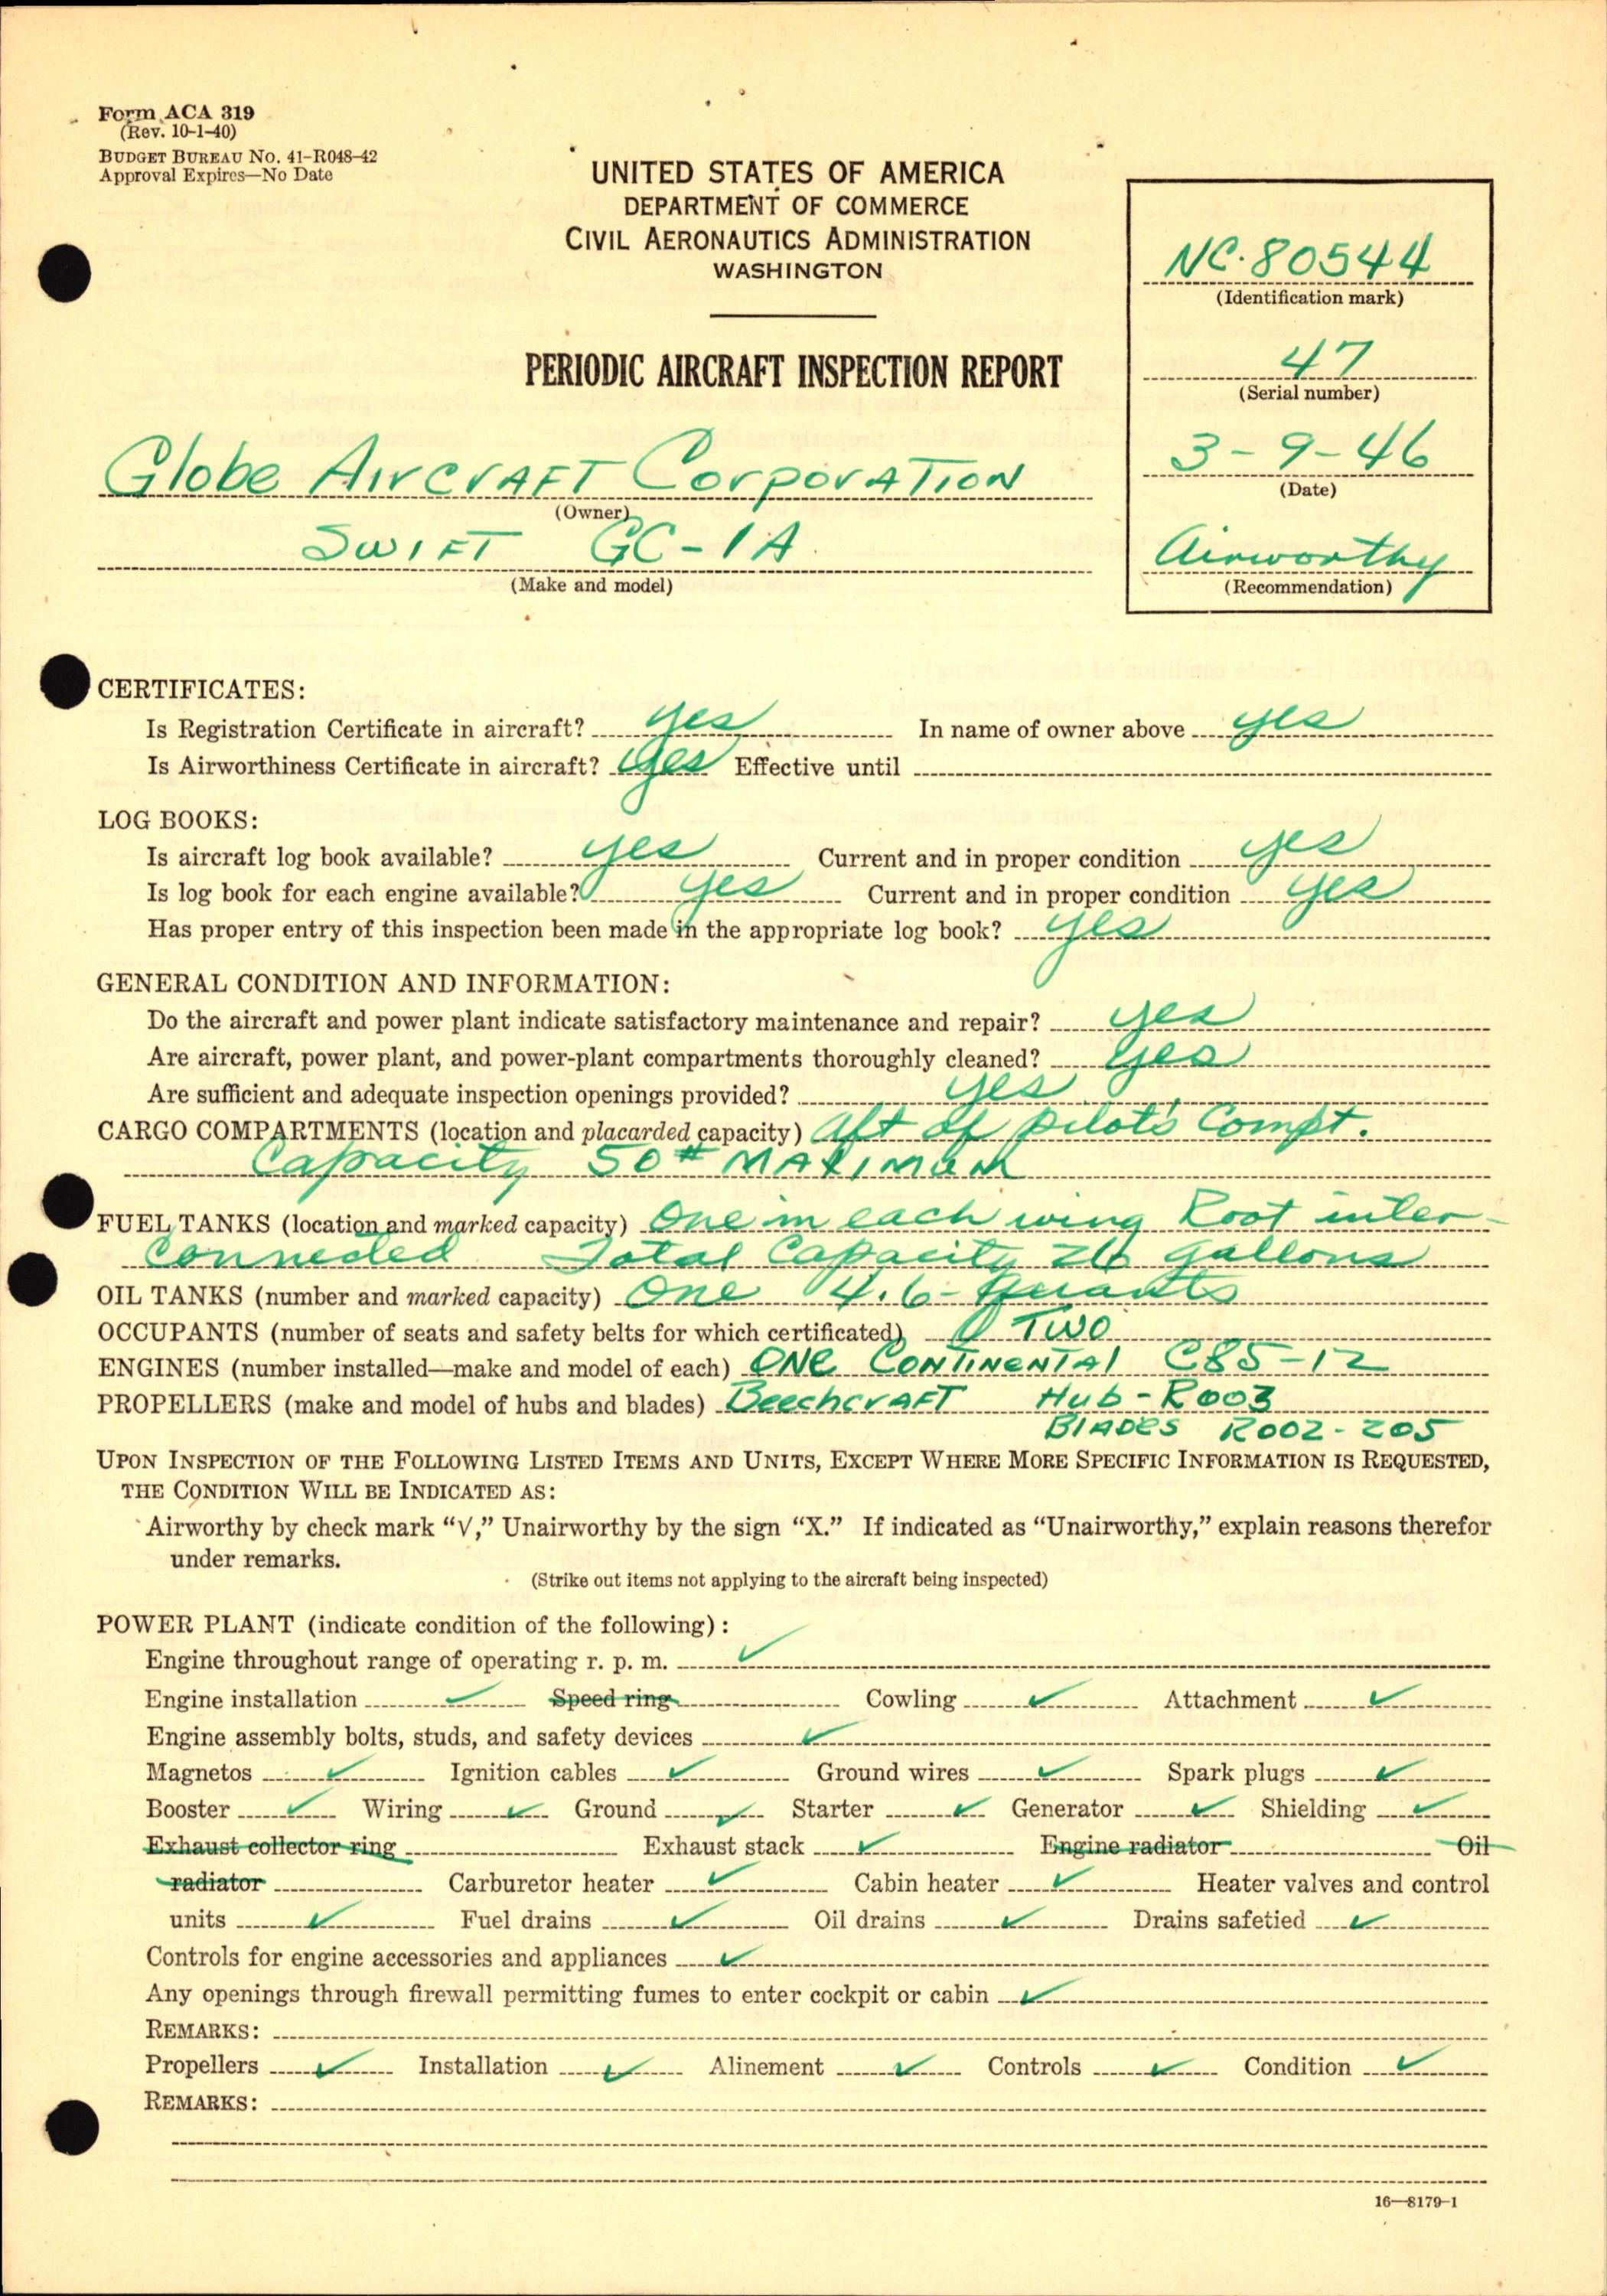 Form ACA 319
(Rev. 10-1-40)
BUDGET BUREAU NO. 41-R048-42
Approval Expires—No Date
UNITED STATES OF AMERICA
DEPARTMENT OF COMMERCE
CIVIL AERONAUTICS ADMINISTRATION
WASHINGTON
PERIODIC AIRCRAFT INSPECTION REPORT
NC.80544
(Identification mark)
47
(Serial number)
3-9-46
(Date)
Airworthy
(Recommendation)
Globe AIrcrAFT CorporATION
(Owner)
SWIFT GC-1A
(Make and model)
CERTIFICATES:
Is Registration Certificate in aircraft? yes In name of owner above yes
Is Airworthiness Certificate in aircraft? yes Effective until
LOG BOOKS:
Is aircraft log book available? yes Current and in proper condition yes
Is log book for each engine available? yes Current and in proper condition yes
Has proper entry of this inspection been made in the appropriate log book? yes
GENERAL CONDITION AND INFORMATION:
Do the aircraft and power plant indicate satisfactory maintenance and repair? yes
Are aircraft, power plant, and power-plant compartments thoroughly cleaned? yes
Are sufficient and adequate inspection openings provided? yes
CARGO COMPARTMENTS (location and placarded capacity) Aft of pilot's Compt.
Capacity 50# MAXIMUM
FUEL TANKS (location and marked capacity) One in each wing Root inter-
connected Total Capacity 26 gallons
OIL TANKS (number and marked capacity) One 4.6- Quarts
OCCUPANTS (number of seats and safety belts for which certificated) TWO
ENGINES (number installed—make and model of each) ONE CONTINENTAL C85-12
PROPELLERS (make and model of hubs and blades) BeechcrAFT Hub-R003
BlADES R002-205
UPON INSPECTION OF THE FOLLOWING LISTED ITEMS AND UNITS, EXCEPT WHERE MORE SPECIFIC INFORMATION IS REQUESTED,
THE CONDITION WILL BE INDICATED AS:
Airworthy by check mark “√,” Unairworthy by the sign “X.” If indicated as “Unairworthy,” explain reasons therefor
under remarks.
(Strike out items not applying to the aircraft being inspected)
POWER PLANT (indicate condition of the following):
Engine throughout range of operating r. p. m. ✓
Engine installation ✓ Speed ring Cowling ✓ Attachment ✓
Engine assembly bolts, studs, and safety devices ✓
Magnetos ✓ Ignition cables ✓ Ground wires ✓ Spark plugs ✓
Booster ✓ Wiring ✓ Ground ✓ Starter ✓ Generator ✓ Shielding ✓
Exhaust collector ring Exhaust stack ✓ Engine radiator Oil
radiator Carburetor heater ✓ Cabin heater ✓ Heater valves and control
units ✓ Fuel drains ✓ Oil drains ✓ Drains safetied ✓
Controls for engine accessories and appliances ✓
Any openings through firewall permitting fumes to enter cockpit or cabin ✓
REMARKS:
Propellers ✓ Installation ✓ Alinement ✓ Controls ✓ Condition ✓
REMARKS:
16—8179-1